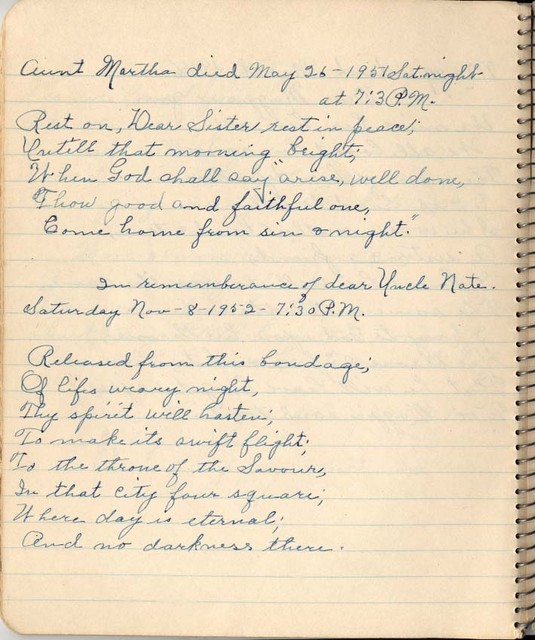 Aunt Martha died May 26-1951 Sat. night
at 7:3 P.M.
Rest on, Dear Sister rest in peace;
Untill that morning beight,
When God shall say "arise, well done,
Thow good and faithful one,
Come home from sin & night."
In rememberance of dear Uncle Nate.
Saturday Nov-8-1952-7:30 P.M.
Released from this bondage;
Of lifes weary night,
Thy spirit will hasten;
To make its swift flight;
To the throne of the Savour,
In that city four square;
Where day is eternal;
And no darkness there.